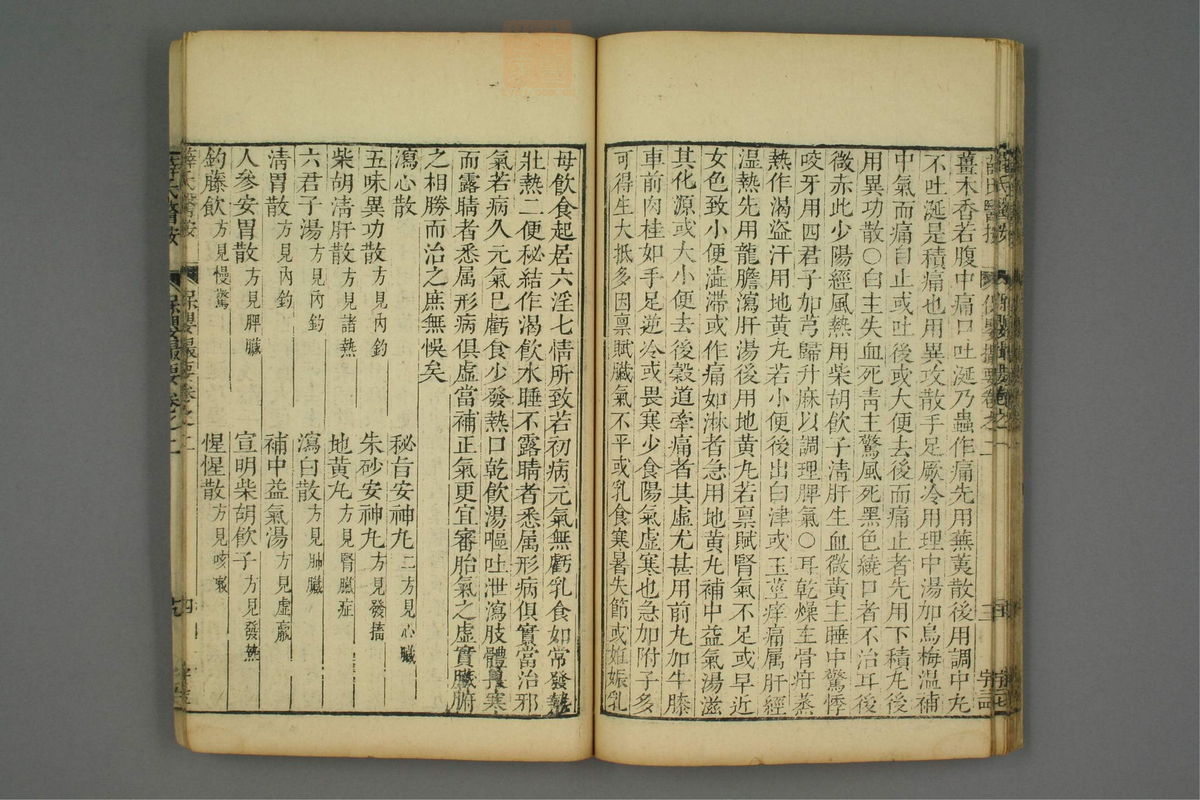 薑木香若腹中痛口吐涎乃蟲作痛先用蕪荑散後用調中丸
不吐涎是積痛也用異攻散手足厥冷用理中湯加烏梅溫補
中氣而痛自止或吐後或大便去後而痛止者先用下積丸後
用異功散○白主失血死青主驚風死黑色繞口者不治耳後
微赤此少陽經風熱用柴胡飲子清肝生血微黃主睡中驚悸
咬牙用四君子加芎歸升麻以調理脾氣○耳乾燥主骨疳蒸
熱作渴盜汗用地黃丸若小便後出白津或玉莖痒痛属肝經
濕熱先用龍膽瀉肝湯後用地黃丸若禀賦腎氣不足或早近
女色致小便澁滯或作痛如淋者急用地黃丸補中益氣湯滋
其化源或大小便去後穀道牽痛者其虛尤甚用前丸加牛膝
車前肉桂如手足逆冷或畏寒少食陽氣虛寒也急加附子多
可得生大抵多因禀賦臟氣不平或乳食寒暑失節或妊娠乳
母飲食起居六淫七情所致若初病元氣無虧乳食如常發熱
壯熱二便秘結作渴飲水睡不露睛者悉属形病俱實當治邪
氣若病久元氣已虧食少發熱口乾飲湯嘔吐泄瀉肢體畏寒
而露睛者悉属形病俱虛當補正氣更宜審胎氣之虛實臟腑
之相勝而治之庶無悞矣
瀉心散 秘旨安神丸二方見心臟
五味異功散方見內釣 朱砂安神丸方見發搐
柴胡清肝散方見諸熱 地黃丸方見腎臟症
六君子湯方見內釣 瀉白散方見肺臟
清胃散方見內釣 補中益氣湯方見虛羸
人參安胃散方見脾臟 宣明柴胡飲子方見發熱
釣藤飲方見慢驚 惺惺散方見咳嗽
薛氏醫按 保嬰撮要卷之二 四